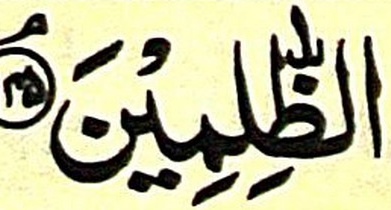 الظّٰلِمِيْنَ ۳۵